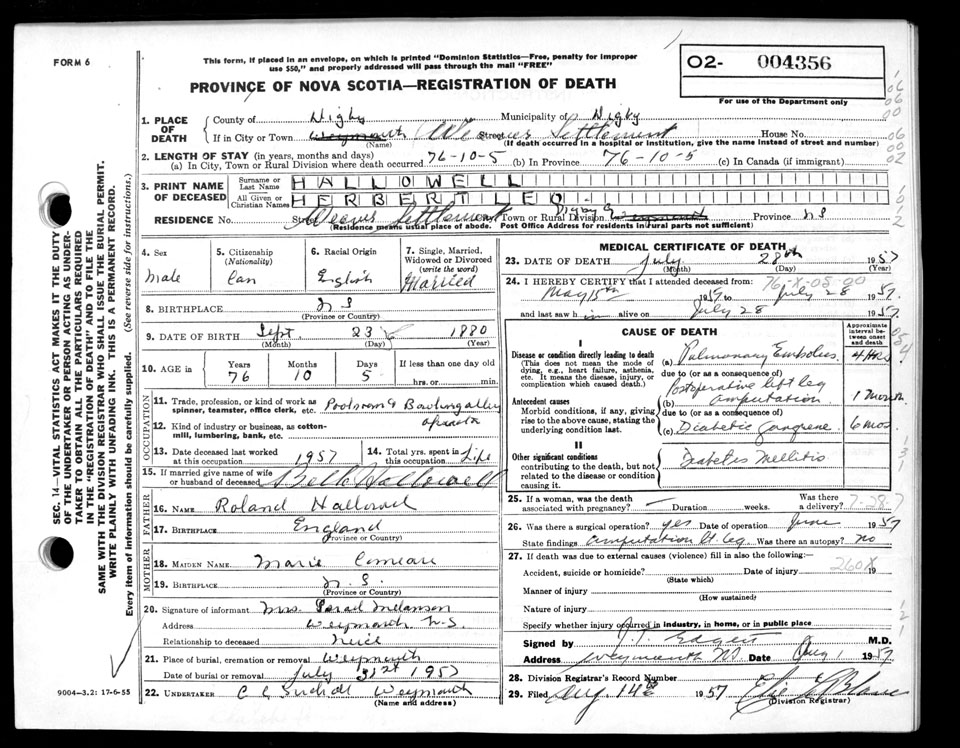 FORM 6
This form, if placed in an envelope, on which is printed "Dominion Statistics—Free, penalty for improper
use $50," and properly addressed will pass through the mail "FREE"
PROVINCE OF NOVA SCOTIA—REGISTRATION OF DEATH
02- 004356
For use of the Department only
1. PLACE OF DEATH
County of Digby Municipality of Digby
If in City or Town Weymouth Weaver Settlement Street House No.
(Name) (If death occurred in a hospital or institution, give the name instead of street and number)
2. LENGTH OF STAY (in years, months and days)
(a) In City, Town or Rural Division where death occurred 76-10-5 (b) In Province 76-10-5 (c) In Canada (if immigrant)
3. PRINT NAME OF DECEASED
Surname or Last Name HALLOWELL
All Given or Christian Names HERBERT LEO
RESIDENCE No. Weaver Settlement Town or Rural Division Digby Co Weymouth Province N S
(Residence means usual place of abode. Post Office Address for residents in rural parts not sufficient)
4. Sex
Male
5. Citizenship
(Nationality)
Can
6. Racial Origin
English
7. Single, Married, Widowed or Divorced
(write the word)
Married
8. BIRTHPLACE N S
(Province or Country)
9. DATE OF BIRTH Sept. 23 1880
(Month) (Day) (Year)
10. AGE in
Years 76
Months 10
Days 5
If less than one day old
hrs. or min.
OCCUPATION
11. Trade, profession, or kind of work as spinner, teamster, office clerk, etc. Poolroom & Bowling alley
12. Kind of industry or business, as cotton-mill, lumbering, bank, etc. operator
13. Date deceased last worked at this occupation 1957
14. Total yrs. spent in this occupation Life
15. If married give name of wife or husband of deceased Hallowell
FATHER
16. NAME Roland Hallowell
17. BIRTHPLACE England
(Province or Country)
MOTHER
18. MAIDEN NAME Marie Comeau
19. BIRTHPLACE N. S.
(Province or Country)
20. Signature of informant Mrs. Melanson
Address Weymouth N.S.
Relationship to deceased Neice
21. Place of burial, cremation or removal Weymouth
Date of burial or removal July 31st 1957
22. UNDERTAKER C Weymouth
(Name and address)
MEDICAL CERTIFICATE OF DEATH
23. DATE OF DEATH July 28th 1957
(Month) (Day) (Year)
24. I HEREBY CERTIFY that I attended deceased from: 76-X-05-00
May 15th 1957 to July 28 1957.
and last saw him alive on July 28 1957.
CAUSE OF DEATH
Approximate interval between onset and death
I
Disease or condition directly leading to death
(This does not mean the mode of dying, e.g., heart failure, asthenia, etc. It means the disease, injury, or complication which caused death.)
(a) Pulmonary Embolus 4 Hrs.
due to (or as a consequence of)
Antecedent causes
Morbid conditions, if any, giving rise to the above cause, stating the underlying condition last.
(b) Postoperative left leg amputation 1 month
due to (or as a consequence of)
(c) Diabetic Gangrene 6 mos
II
Other significant conditions
contributing to the death, but not related to the disease or condition causing it.
Diabetes Mellitis
25. If a woman, was the death associated with pregnancy? — Duration weeks. Was there a delivery? 7-28-7
26. Was there a surgical operation? yes Date of operation June 1957
State findings amputation lt. leg Was there an autopsy? no
27. If death was due to external causes (violence) fill in also the following:—
Accident, suicide or homicide? Date of injury 260X 19
(State which)
Manner of injury
(How sustained)
Nature of injury
Specify whether injury occurred in industry, in home, or in public place
Signed by M.D.
Address Weymouth NS Date Aug 1 1957.
28. Division Registrar's Record Number
29. Filed Aug. 14th 1957
(Division Registrar)
SEC. 14—VITAL STATISTICS ACT MAKES IT THE DUTY
OF THE UNDERTAKER OR PERSON ACTING AS UNDER-
TAKER TO OBTAIN ALL THE PARTICULARS REQUIRED
IN THE "REGISTRATION OF DEATH" AND TO FILE THE
SAME WITH THE DIVISION REGISTRAR WHO SHALL ISSUE THE BURIAL PERMIT.
WRITE PLAINLY WITH UNFADING INK. THIS IS A PERMANENT RECORD.
Every item of information should be carefully supplied. (See reverse side for instructions.)
9004-3.2: 17-6-55